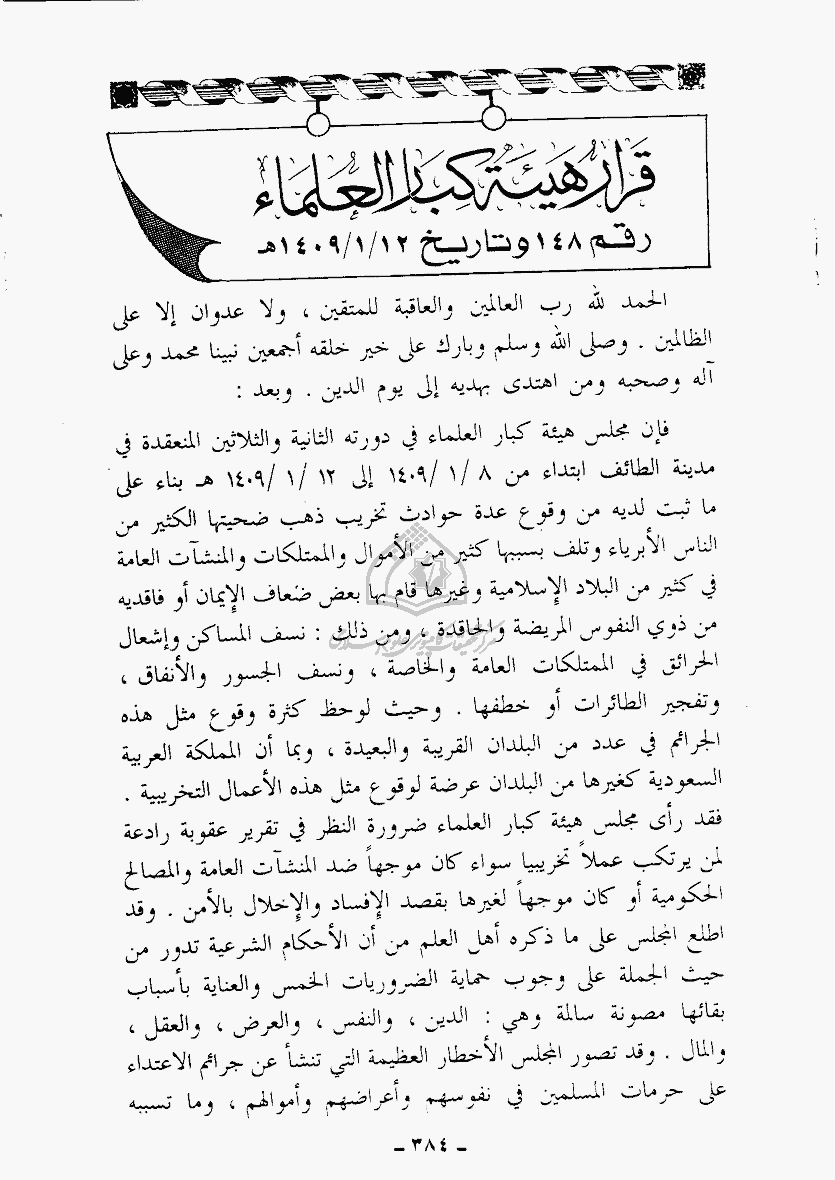 قرار هيئة كبار العلماء
رقم ١٤٨ وتاريخ ١٤٠٩/١/١٢هـ
الحمد لله رب العالمين والعاقبة للمتقين ، ولا عدوان إلا على
الظالمين . وصلى الله وسلم وبارك على خير خلقه أجمعين نبينا محمد وعلى
آله وصحبه ومن اهتدى بهديه إلى يوم الدين . وبعد :
فإن مجلس هيئة كبار العلماء في دورته الثانية والثلاثين المنعقدة في
مدينة الطائف ابتداء من ٨ /١ /١٤٠٩ إلى ١٢ /١ /١٤٠٩ هـ بناء على
ما ثبت لديه من وقوع عدة حوادث تخريب ذهب ضحيتها الكثير من
الناس الأبرياء وتلف بسببها كثير من الأموال والممتلكات والمنشآت العامة
في كثير من البلاد الإسلامية وغيرها قام بها بعض ضعاف الإيمان أو فاقديه
من ذوي النفوس المريضة والحاقدة ، ومن ذلك : نسف المساكن وإشعال
الحرائق في الممتلكات العامة والخاصة ، ونسف الجسور والأنفاق ،
وتفجير الطائرات أو خطفها . وحيث لوحظ كثرة وقوع مثل هذه
الجرائم في عدد من البلدان القريبة والبعيدة ، وبما أن المملكة العربية
السعودية كغيرها من البلدان عرضة لوقوع مثل هذه الأعمال التخريبية .
فقد رأى مجلس هيئة كبار العلماء ضرورة النظر في تقرير عقوبة رادعة
لمن يرتكب عملاً تخريبيا سواء كان موجهاً ضد المنشآت العامة والمصالح
الحكومية أو كان موجهاً لغيرها بقصد الإفساد والإخلال بالأمن . وقد
اطلع المجلس على ما ذكره أهل العلم من أن الأحكام الشرعية تدور من
حيث الجملة على وجوب حماية الضروريات الخمس والعناية بأسباب
بقائها مصونة سالمة وهي : الدين ، والنفس ، والعرض ، والعقل ،
والمال . وقد تصور المجلس الأخطار العظيمة التي تنشأ عن جرائم الاعتداء
على حرمات المسلمين في نفوسهم وأعراضهم وأموالهم ، وما تسببه
- ٣٨٤ -